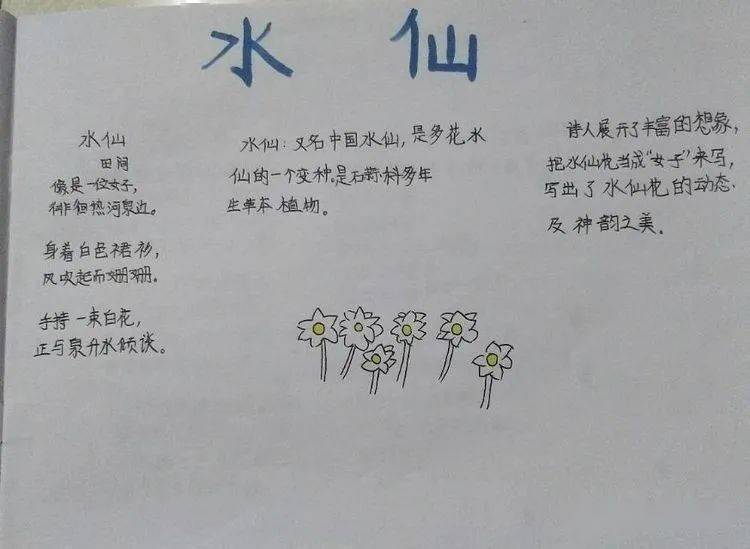 水仙
水仙
田间
像是一位女子，
徘徊热河泉边。
身着白色裙衫，
风吹起而姗姗。
手持一束白花，
正与泉水倾谈。
水仙：又名中国水仙，是多花水
仙的一个变种。是石蒜科多年
生草本植物。
诗人展示了丰富的想象，
把水仙花当成“女子”来写，
写出了水仙花的动态
及神韵之美。